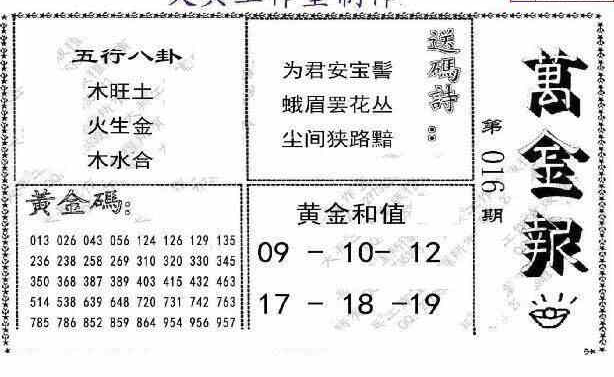 五行八卦
木旺土
火生金
木水合
送碼詩：
为君安宝髻
蛾眉罢花丛
尘间狭路黯
萬金報
第016期
黄金碼:
013 026 043 056 124 126 129 135
236 238 258 269 310 320 330 345
350 368 387 389 403 415 432 463
514 538 639 648 720 731 742 763
785 786 852 859 864 954 956 957
黄金和值
09 - 10- 12
17 - 18 -19